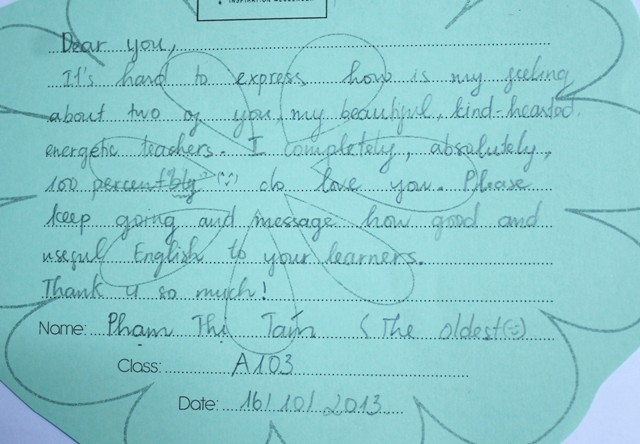 Dear you,
It's hard to express how is my feeling
about two of you, my beautiful, kind-hearted,
energetic teachers. I completely, absolutely,
100 percentbly (:) do love you. Please
keep going and message how good and
useful English to your learners.
Thank u so much!
Name: Phạm Thị Tâm (The oldest (:)
Class: A103
Date: 16/10/2013